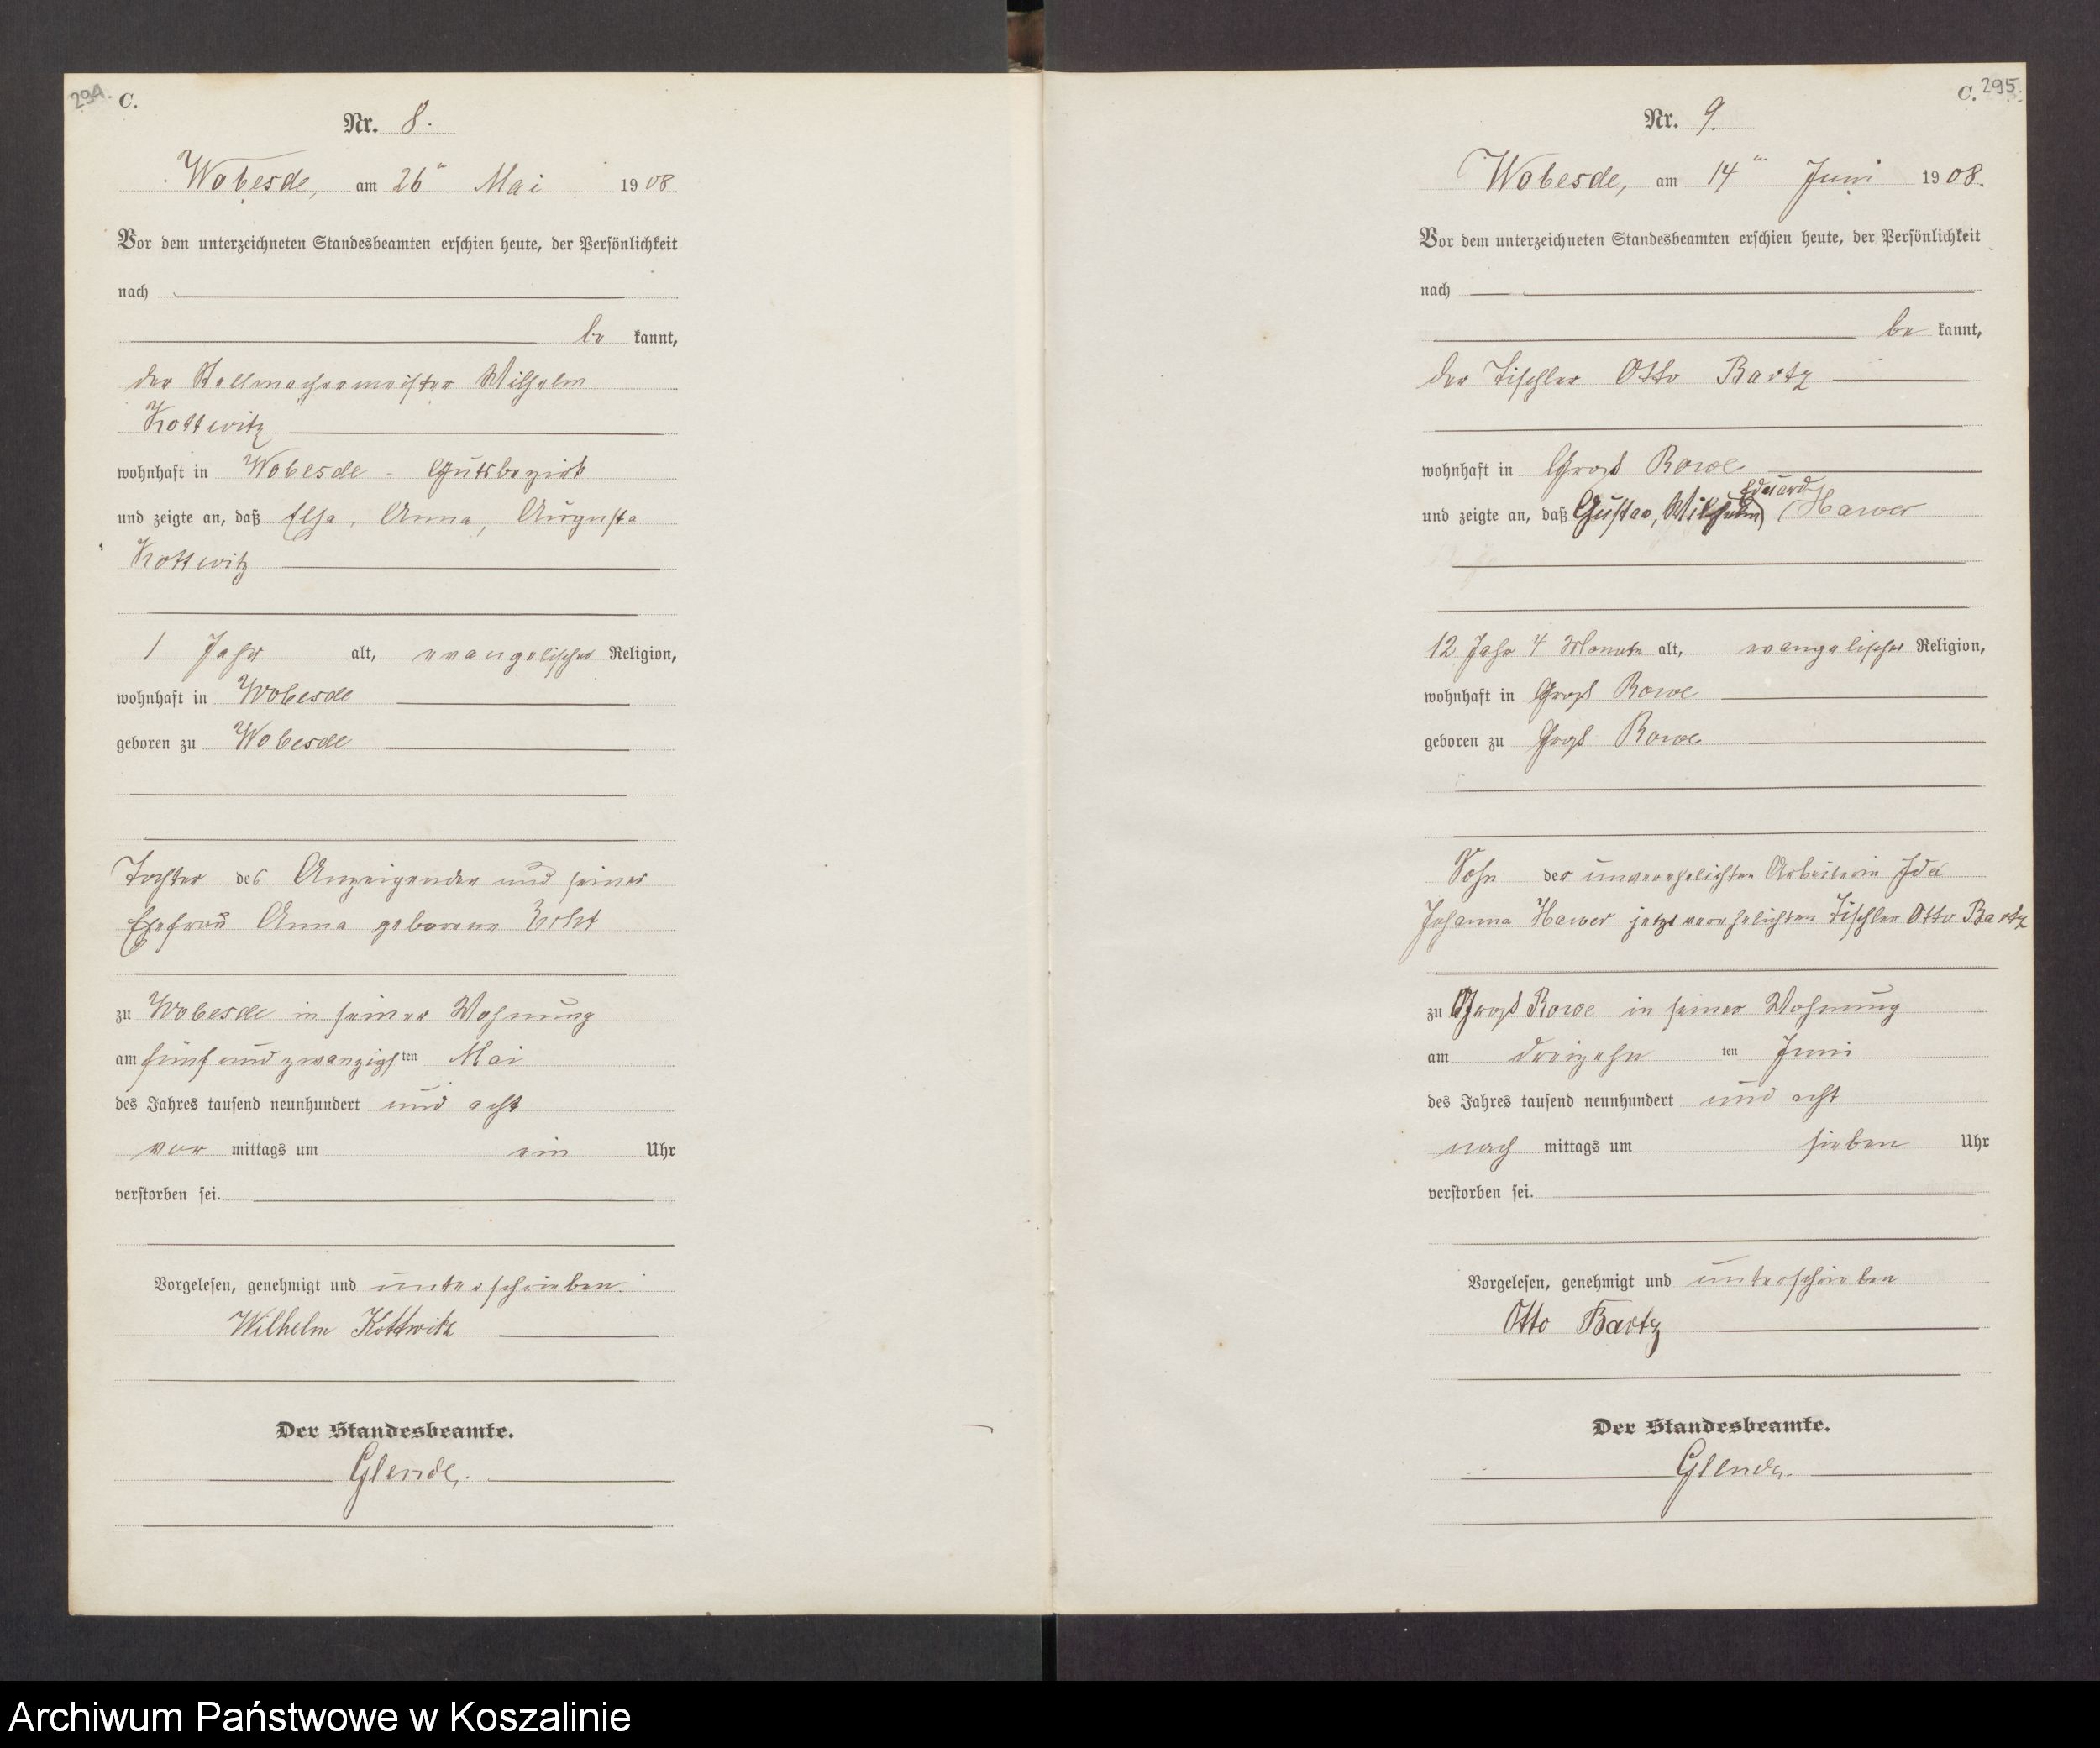 294.
C.
Nr. 8.
Wobesde, am 26ten Mai 1908
Vor dem unterzeichneten Standesbeamten erschien heute, der Persönlichkeit
nach
be kannt,
der Stellmachermeister Wilhelm
Kottwitz
wohnhaft in Wobesde - Gutsbezirk
und zeigte an, daß Elsa, Anna, Augusta
Kottwitz
1 Jahr alt, evangelischer Religion,
wohnhaft in Wobesde
geboren zu Wobesde
Tochter des Anzeigenden und seiner
Ehefrau Anna geborene
zu Wobesde in seiner Wohnung
am fünf und zwanzigsten Mai
des Jahres tausend neunhundert und acht
vor mittags um ein Uhr
verstorben sei.
Vorgelesen, genehmigt und unterschrieben.
Wilhelm Kottwitz
Der Standesbeamte.
Glende.
C. 295.
Nr. 9.
Wobesde, am 14ten Juni 1908.
Vor dem unterzeichneten Standesbeamten erschien heute, der Persönlichkeit
nach
be kannt,
der Tischler Otto Bartz
wohnhaft in Groß Rowe
Eduard
und zeigte an, daß Gustav, Wilhelm, Hawer
12 Jahr 4 Monate alt, evangelischer Religion,
wohnhaft in Groß Rowe
geboren zu Groß Rowe
Sohn der unverehelichten Arbeiterin Ida
Johanna Hawer jetzt verehelichten Tischler Otto Bartz
zu Groß Rowe in seiner Wohnung
am dreizehn ten Juni
des Jahres tausend neunhundert und acht
nach mittags um sieben Uhr
verstorben sei.
Vorgelesen, genehmigt und unterschrieben
Otto Bartz
Der Standesbeamte.
Glende.
Archiwum Państwowe w Koszalinie